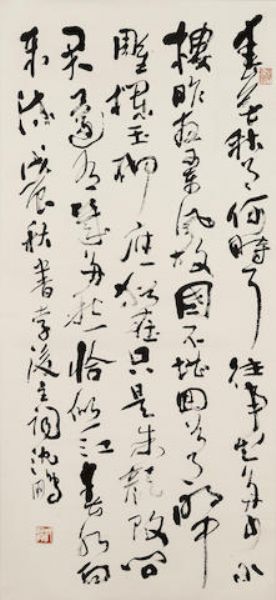 春花秋月何時了往事知多少小
樓昨夜又東風故國不堪回首月明中
雕欄玉砌應猶在只是朱顏改問
君有幾多愁恰似一江春水向
東流戊辰秋書李後主詞沈鵬